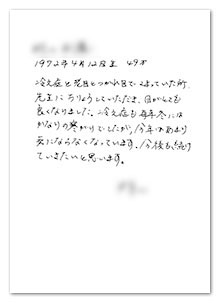 1972年4月12日生 49才
冷え症と荒目とつかれ目でこまっていた所
先生にちりょうしていただき、目がとても
良くなりました。冷え症も毎年冬には
かなりの寒がりでしたが、今年はあまり
気にならなくなっています。今後も続け
ていきたいと思います。